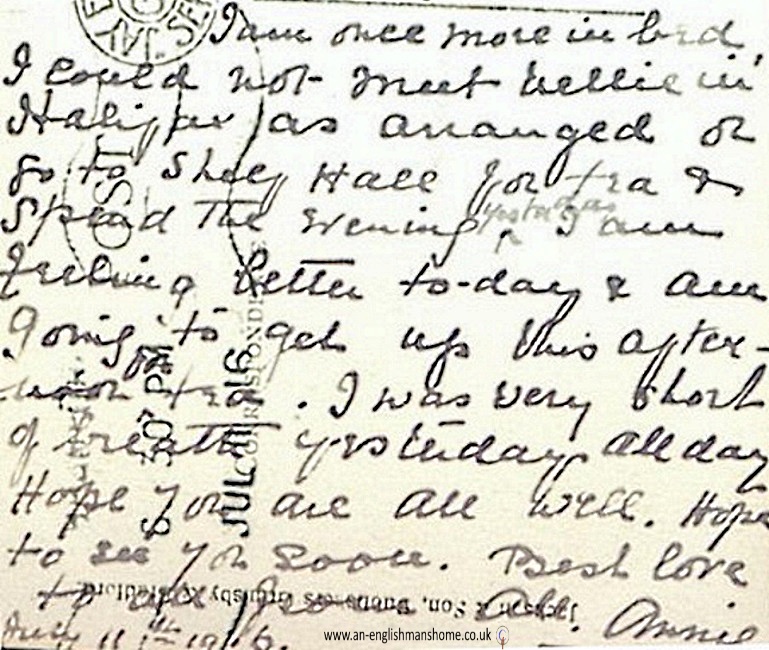 I am once more in bed,
I could not meet Nellie in
Halifax as arranged or
go to Hall for tea &
spend the evening yesterday. I am
feeling better to-day & am
going to get up this after-
noon for tea. I was very short
of breath yesterday all day
Hope you are all well. Hope
to see you soon. Best love
to all from All. Annie
July 11th 1916.
JUL 16
5 30 PM
CORRESPONDENCE
& Son, Grimsby & Bradford
www.an-englishmanshome.co.uk